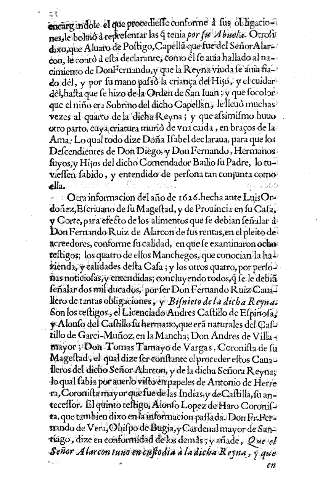 encargandole el que procediesse conforme à sus obligacio-
nes, le boluió à representar las q̃ tenia por su Abuela. Otrosi
dixo, que Aluaro de Postigo, Capellã que fue del Señor Alar-
con, le contò à esta declarante, como èl se auia hallado al na-
cimiento de Don Fernando, y que la Reyna viuda se auia fia-
do dèl, y por su mano passò la criança del Hijo, y el cuidar
dèl, hasta que se hizo de la Orden de San Iuan; y que so color
que el niño era Sobrino del dicho Capellan, le lleuò muchas
vezes al quarto de la dicha Reyna; y que assimismo huuo
otro parto, cuya criatura muriò de vna caida, en braços de la
Ama: Lo qual todo dize Doña Isabel declaraua, para que los
Descendientes de Don Diego, y Don Fernando, Hermanos
suyos, y Hijos del dicho Comendador Bailio su Padre, lo tu-
uiessen sabido, y entendido de persona tan conjunta como
ella.
Otra informacion del año de 1626. hecha ante Luis Or-
doñez, Escriuano de su Magestad, y de Prouincia en su Casa,
y Corte, para efecto de los alimentos que se debian señalar à
Don Fernando Ruiz de Alarcon de sus rentas, en el pleito de
acreedores, conforme su calidad, en que se examinaron ocho
testigos; los quatro de ellos Manchegos, que conocian la ha-
zienda, y calidades desta Casa; y los otros quatro, por perso-
nas noticiosas, y entendidas; concluyendo todos, q̃ se le debiã
señalar dos mil ducados, por ser Don Fernando Ruiz Caua-
llero de tantas obligaciones, y Bisnieto de la dicha Reyna:
Son los testigos, el Licenciado Andres Castillo de Espinosa,
y Alonso del Castillo su hermano, que erã naturales del Cas-
tillo de Garci-Muñoz en la Mancha; Don Andres de Villa-
mayor; Don Tomas Tamayo de Vargas, Coronista de su
Magestad, el qual dize ser constante el proceder estos Caua-
lleros del dicho Señor Alarcon, y de la dicha Señora Reyna;
lo qual sabia por auerlo visto en papeles de Antonio de Herre-
ra, Coronista mayor que fue de las Indias, y de Castilla, su an-
tecessor. El quinto testigo, Alonso Lopez de Haro Coronis-
ta, que tambien dixo en la informacion passada. Don Fr. Fer-
nando de Vera, Obispo de Bugia, y Cardenal mayor de San-
tiago, dize en conformidad de los demàs; y añade, Que el
Señor Alarcon tuuo en custodia à la dicha Reyna, y que
en